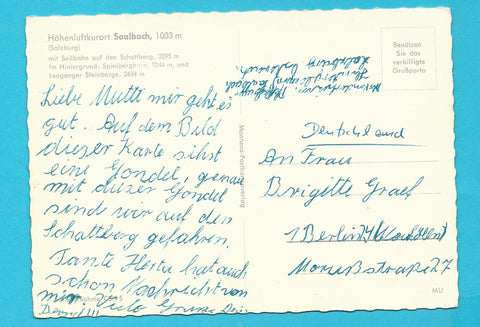 Höhenluftkurort Saalbach, 1003 m
(Salzburg)
mit Seilbahn auf den Schattberg, 2095 m
Im Hintergrund: Spielberghorn, 2044 m, und
Leoganger Steinberge, 2634 m
Benützen
Sie das
verbilligte
Grußporto
Liebe Mutti mir geht es
gut. Auf dem Bild
dieser Karte sihst
eine Gondel, genau
mit dieser Gondel
sind wir auf den
Schattberg gefahren.
Tante Herta hat auch
schon Nachricht von
mir. Viele Grüsse Dein
Bernd!!!
Saalbach
Salzburg
Deutschland
An Frau
Brigitte Graef
1 Berlin 21
27
MU